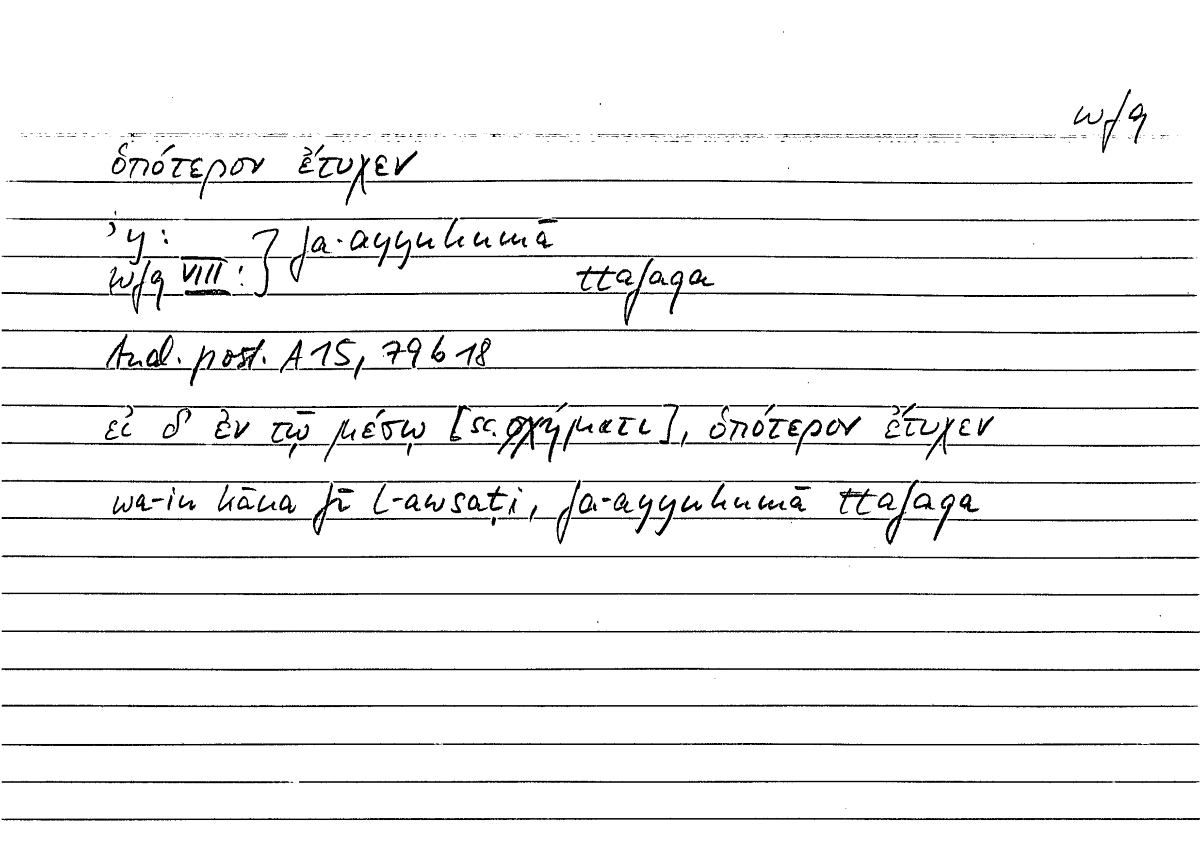 wfq
ὁπότερον ἔτυχεν
ʾy: } fa-ayyuhumā
wfq VIII: ttafaqa
Anal. post. A 15, 79 b 18
εἰ δ' ἐν τῷ μέσῳ [sc. σχήματι], ὁπότερον ἔτυχεν
wa-in kāna fī l-awsaṭi, fa-ayyuhumā ttafaqa